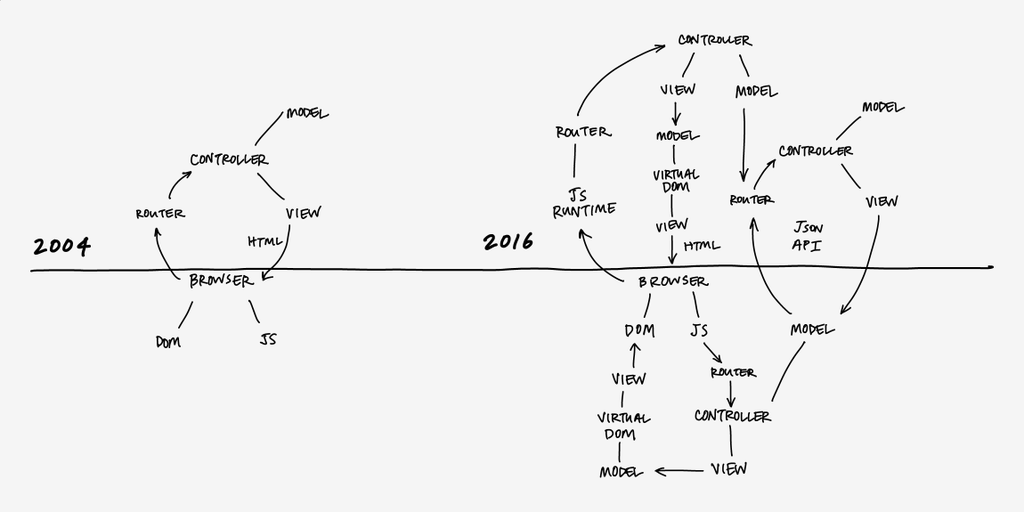 2004
MODEL
CONTROLLER
ROUTER
VIEW
HTML
BROWSER
DOM
JS
2016
CONTROLLER
VIEW
MODEL
ROUTER
MODEL
VIRTUAL
DOM
JS
RUNTIME
VIEW
HTML
MODEL
CONTROLLER
ROUTER
VIEW
JSON
API
BROWSER
DOM
JS
MODEL
VIEW
ROUTER
VIRTUAL
DOM
CONTROLLER
MODEL
VIEW